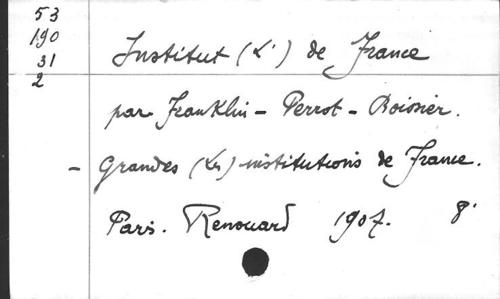 53
190
31
2
Institut (L') de France
par Franklin - Perrot - Boissier.
- Grandes (Les) institutions de France.
Paris. Renouard 1907. 8°